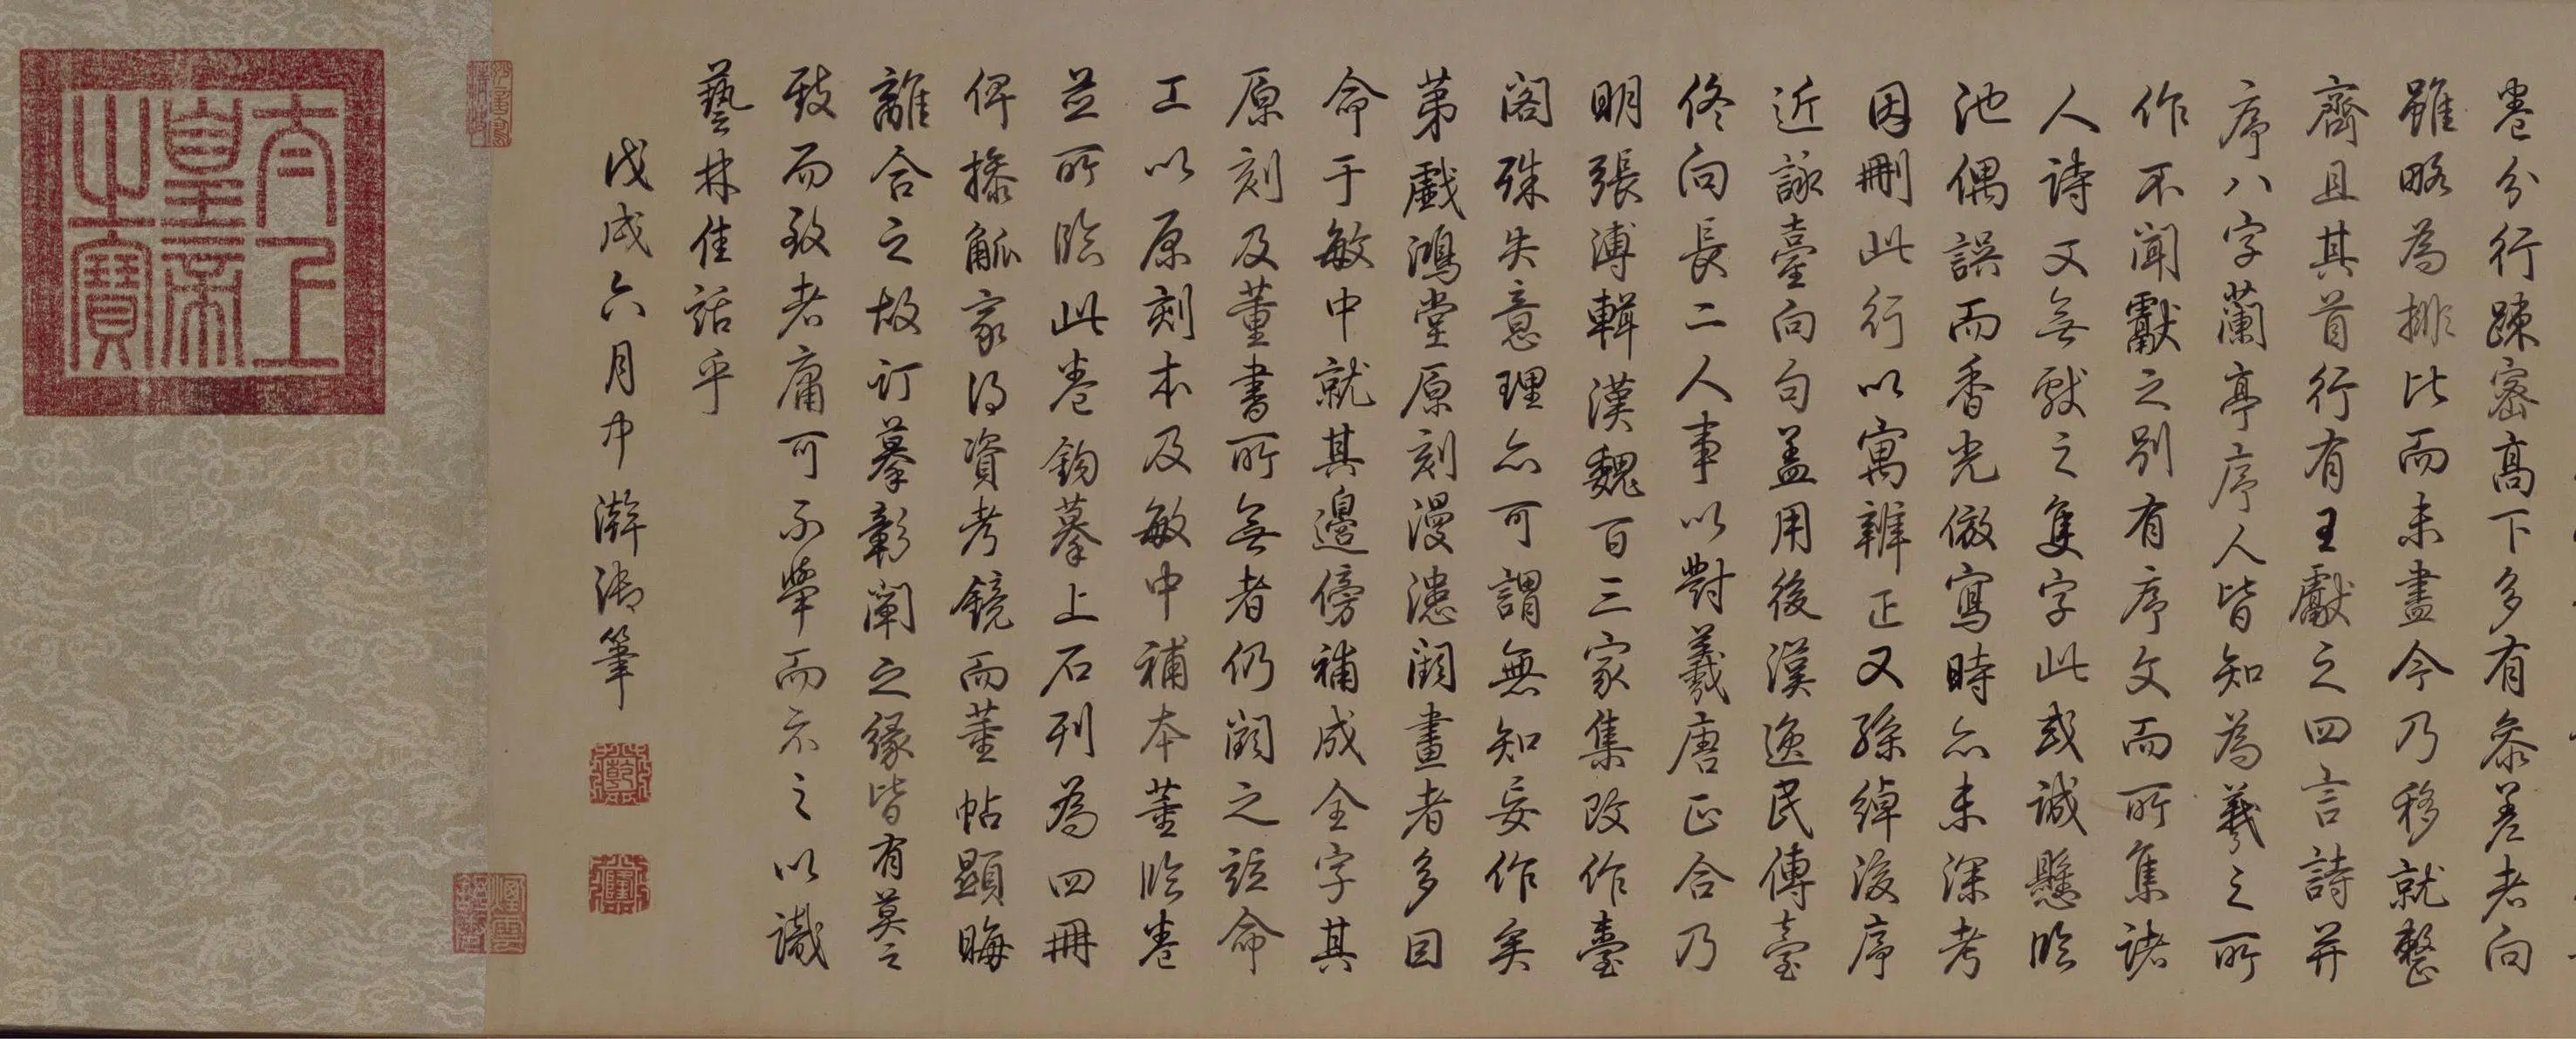 卷分行踈密高下多有叅差者向
雖略為排比而未盡今乃移就整
齊且其首行有王獻之四言詩并
序八字蘭亭序人皆知為羲之所
作不聞獻之別有序文而所集諸
人詩又無獻之隻字此或誠懸臨
池偶誤而香光倣寫時亦未深考
因刪此行以寓辨正又孫綽後序
近詠臺向句盖用後漢逸民傳臺
佟向長二人事以對羲唐正合乃
明張溥輯漢魏百三家集改作臺
閣殊失意理亦可謂無知妄作矣
苐戲鴻堂原刻漫漶闕畫者多因
命于敏中就其邊傍補成全字其
原刻及董書所無者仍闕之竝命
工以原刻本及敏中補本董臨卷
並所臨此卷鉤摹上石列為四冊
俾操觚家得資考鏡而董帖顯晦
離合之故訂摹彰闡之緣皆有莫之
致而致者庸可不舉而示之以識
藝林佳話乎
戊戌六月中澣御筆
乾
隆
太上
皇帝
之寶